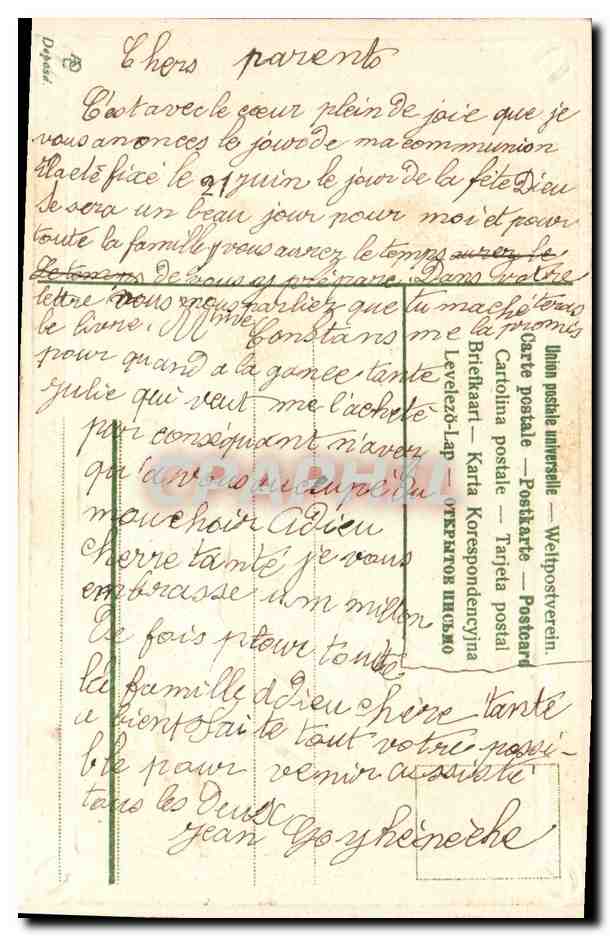 Chers parents
C'est avec le cœur plein de joie que je
vous anonces le jour de ma communion
Il a eté fixé le 21 juin le jour de la fête Dieu
Se sera un beau jour pour moi et pour
toute la famille vous aurez le temps aurez le
de vous y prépare. Dans votre
lettre vous nous parliez que tu m'achèteras
be livre. Mme Constans me la promis
pour quand a la gance tante
julie qui veut me l'acheté
par conséquant n'aver
qu'a vous occupé du
mouchoir Adieu
cherre tanté je vous
embrasse um millon
De fois pour toute
la famille Adieu chère tanté
a bientot faite tout votre possi-
ble pour venir assisté
tous les deux
Jean Goyhénèche
Deposé.
Union postale universelle — Weltpostverein.
Carte postale — Postkarte — Postcard
Cartolina postale — Tarjeta postal
Briefkaart — Karta Korespondencyjna
Levelező-Lap — ОТКРЫТОЕ ПИСЬМО
CPAPHIL